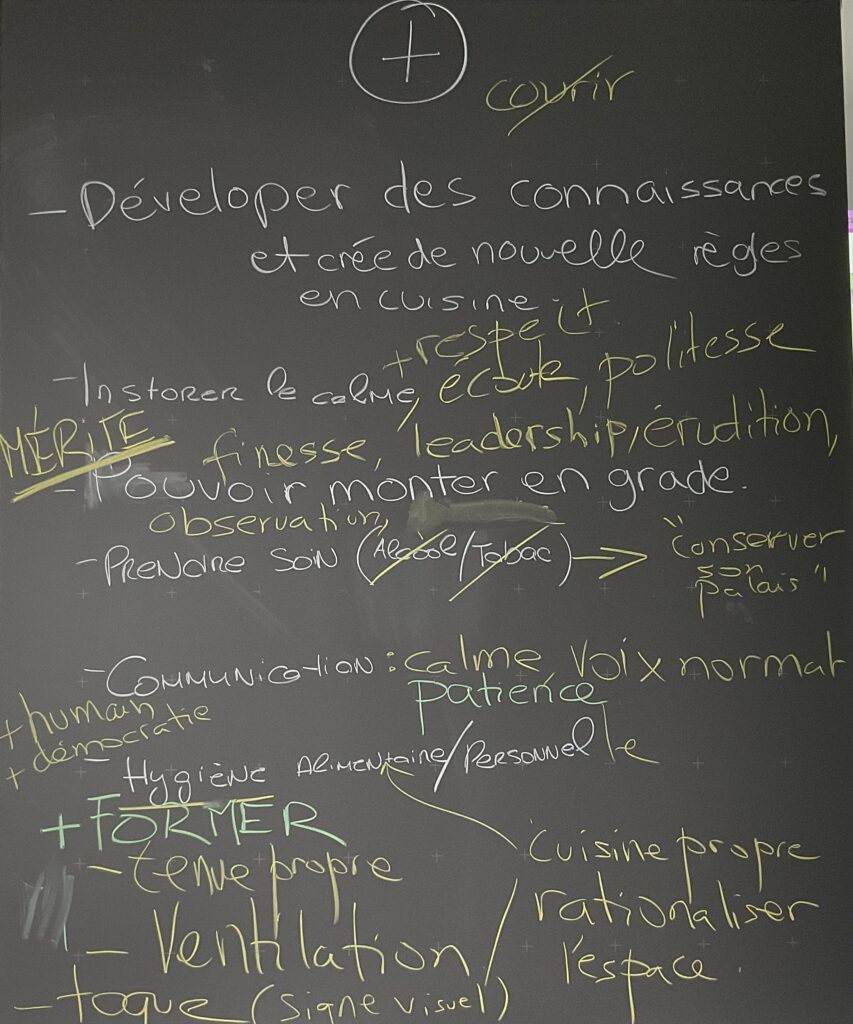 +
courir
- Déveloper des connaissances
et crée de nouvelle règles
en cuisine.
+ respect
- Instorer le calme, écoute, politesse
MÉRITE
finesse, leadership, érudition,
- Pouvoir monter en grade.
observation,
- Prendre soin (Alcool/Tabac) → "conserver
son
palais"
- Communication : calme voix normal
patience
+ humain
+ démocratie
- Hygiène Alimentaire/Personnelle
+ FORMER
cuisine propre
- tenue propre
rationaliser
- Ventilation /
l'espace.
- toque (signe visuel)